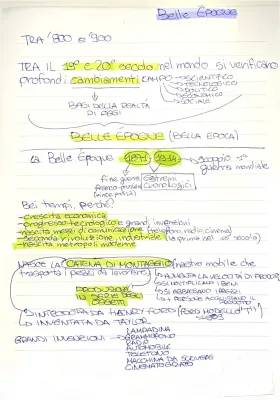 Belle Époque
TRA '800 e 900
TRA IL 19° e 20° secolo nel mondo si verificano
profondi cambiamenti CAMPO → SCIENTIFICO
→ TECNOLOGICO
→ POLITICO
→ ECONOMICO
→ SOCIALE
BASI DELLA REALTÀ
DI OGGI
BELLE ÉPOQUE (BELLA EPOCA)
La Belle Époque 1871 1914 → scoppio
guerra mondiale
fine guerra
franco-prussiana
estremi
cronologici
Bei tempi, perché?
- crescita economica
- progresso tecnologico e grandi invenzioni
- nascita mezzi di comunicazione (telefono, radio, cinema)
- Seconda rivoluzione industriale
- nascita metropoli moderne
NASCE LA CATENA DI MONTAGGIO (nastro mobile che
trasporta i pezzi da lavorare)
→ AUMENTA LA VELOCITÀ DI PRODUZ.
→ SI MOLTIPLICANO I BENI
→ SI ABBASSANO I PREZZI
→ + PERSONE ACQUISTANO IL
PRODUZIONE
IN SERIE DEGLI
OGGETTI
→ INTRODOTTA DA HENRY FORD (FORD MODELLO T)
→ INVENTATA DA TAYLOR
GRANDI INVENZIONI → LAMPADINA
→ GRAMMOFONO
→ RADIO
→ AUTOMOBILE
→ TELEFONO
→ MACCHINA DA SCRIVERE
→ CINEMATOGRAFO